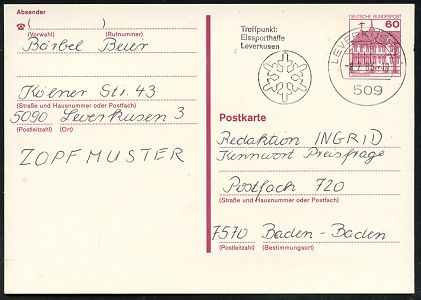 Absender
(Vorwahl) (Rufnummer)
Bärbel Beier
Kölner Str. 43
(Straße und Hausnummer oder Postfach)
5090 Leverkusen 3
(Postleitzahl) (Ort)
ZOPFMUSTER
Treffpunkt:
Eissporthalle
Leverkusen
DEUTSCHE BUNDESPOST
60
LEVERKUSEN
509
Postkarte
Redaktion INGRID
Kennwort Preisfrage
Postfach 720
(Straße und Hausnummer oder Postfach)
7570 Baden-Baden
(Postleitzahl) (Bestimmungsort)